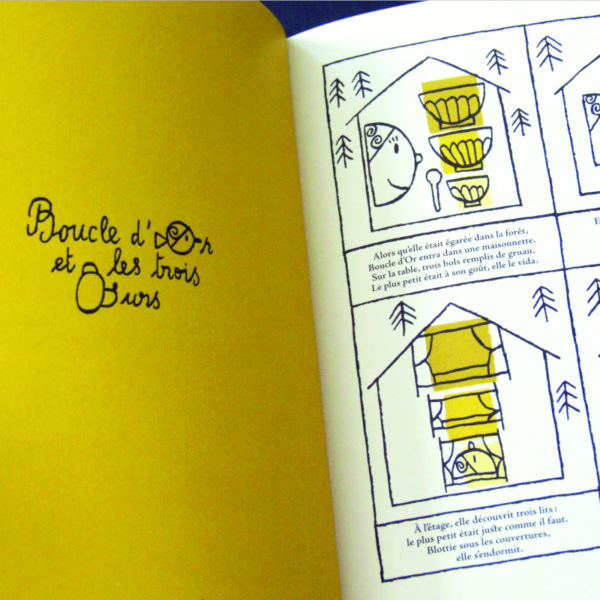 Boucle d'Or
et les trois
Ours
Alors qu'elle était égarée dans la forêt,
Boucle d'Or entra dans une maisonnette.
Sur la table, trois bols remplis de gruau.
Le plus petit était à son goût, elle le vida.
E
À l'étage, elle découvrit trois lits :
le plus petit était juste comme il faut.
Blottie sous les couvertures,
elle s'endormit.